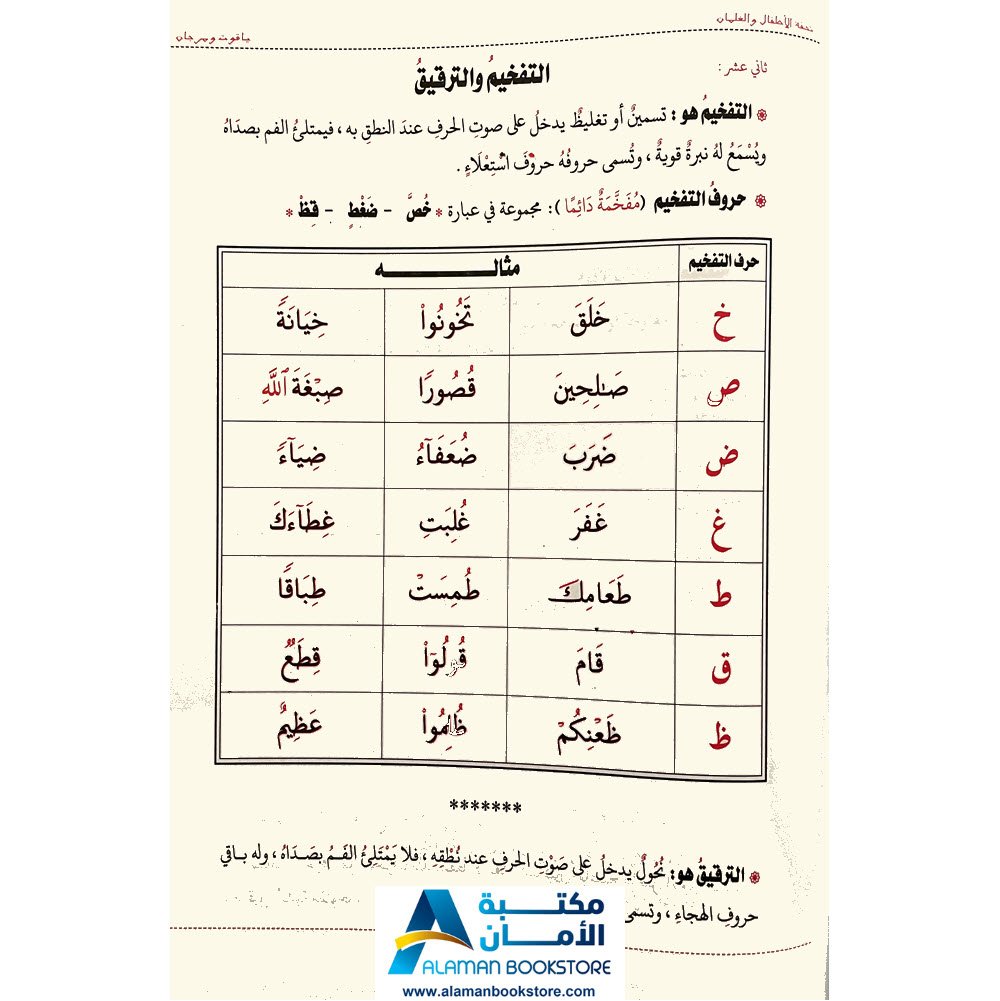 تحفة الأطفال والغلمان
ياقوت ومرجان
ثاني عشر :
التفخيمُ والترقيقُ
التفخيمُ هو : تسمينٌ أو تغليظٌ يدخلُ على صوتِ الحرفِ عندَ النطقِ به ، فيمتلئُ الفم بصداهُ
ويُسْمَعُ لهُ نبرةٌ قويةٌ ، وتُسمى حروفُهُ حروفَ اسْتِعْلَاءٍ .
حروفُ التفخيم (مُفَخَّمَةٌ دَائِمًا) : مجموعة في عبارة * خُصَّ - ضَغْطٍ - قِظْ *
حرف التفخيم مثالـــه
خ خَلَقَ تَخُونُواْ خِيَانَةً
ص صَـٰلِحِينَ قُصُورًا صِبْغَةَ ٱللَّهِ
ض ضَرَبَ ضُعَفَآءُ ضِيَآءً
غ غَفَرَ غُلِبَتِ غِطَآءَكَ
ط طَعَامِكَ طُمِسَتْ طِبَاقًا
ق قَامَ قُولُوٓاْ قِطَعٌ
ظ ظَعْنِكُمْ ظُلِمُواْ عَظِيمٌ
*******
الترقيقُ هو: نُحُولٌ يدخلُ على صَوْتِ الحرفِ عند نُطْقِهِ ، فلا يَمْتَلِئُ الفَمُ بصَدَاهُ ، وله باقي
حروفِ الهجاءِ ، وتسمى
مكتبة
الأمان
ALAMAN BOOKSTORE
www.alamanbookstore.com